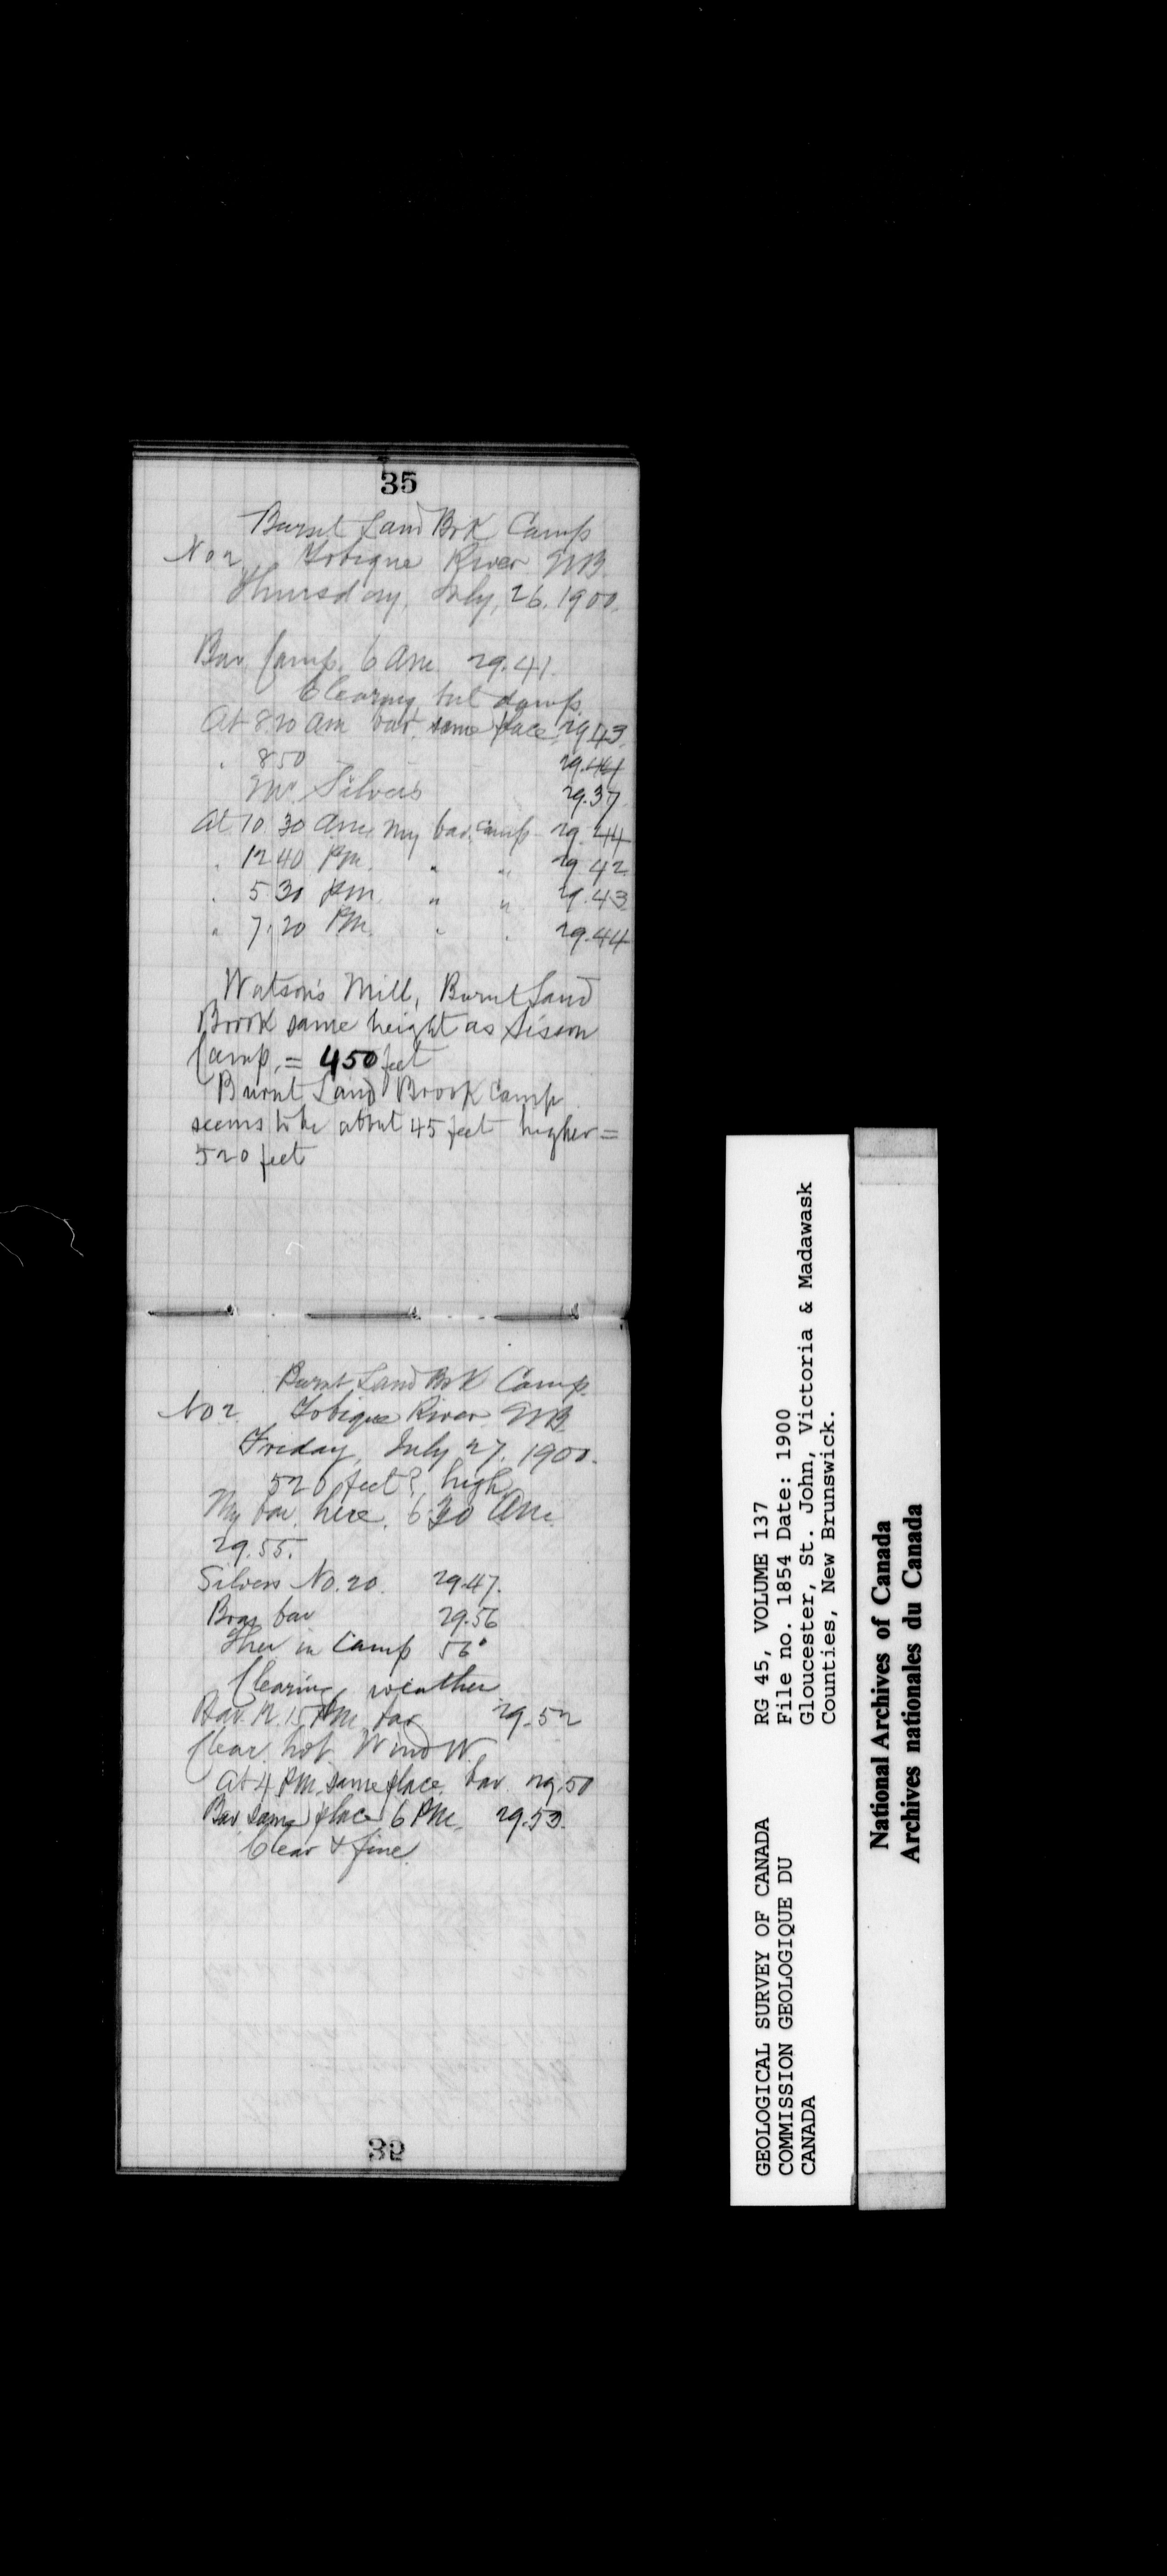 35
Burnt Land Brk Camp
No 2. Tobique River NB.
Thursday, July, 26. 1900.
Bar Camp. 6 AM 29.41.
Clearing but damp.
At 8.20 am bar. same place 29.43.
" 850 29.44
Mr. Silvers 29.37
At 10.30 Am. My bar. camp 29.44
" 12 40 PM. " " 29.42
" 5.30 PM. " " 29.43
" 7.20 PM. " " 29.44
Watson's Mill, Burnt Land
Brook same height as Sisson
Camp, = 450 feet
Burnt Land Brook Camp
seems to be about 45 feet higher =
520 feet
Burnt Land Brk Camp.
No 2. Tobique River. NB.
Friday, July 27. 1900.
520 feet? high
My bar. here. 6.30 AM.
29.55.
Silvers No. 20. 29.47.
bar 29.56
Ther in Camp 56°
Clearing weather
Bar. 12.15 PM bar 29.52
Clear. hot. Wind W.
At 4 PM. same place. bar 29.50
Bar same place 6 PM. 29.53.
Clear & fine.
32
GEOLOGICAL SURVEY OF CANADA
COMMISSION GEOLOGIQUE DU
CANADA
RG 45, VOLUME 137
File no. 1854 Date: 1900
Gloucester, St. John, Victoria & Madawask
Counties, New Brunswick.
National Archives of Canada
Archives nationales du Canada